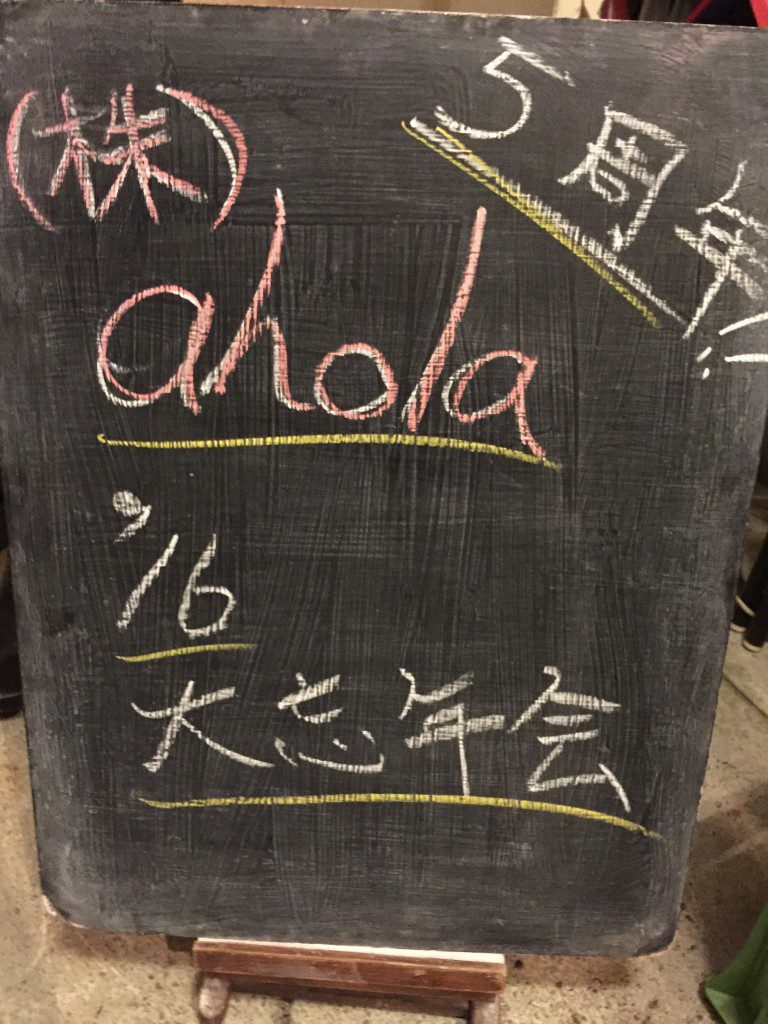 (株)
5周年!!
ahola
'16
大忘年会